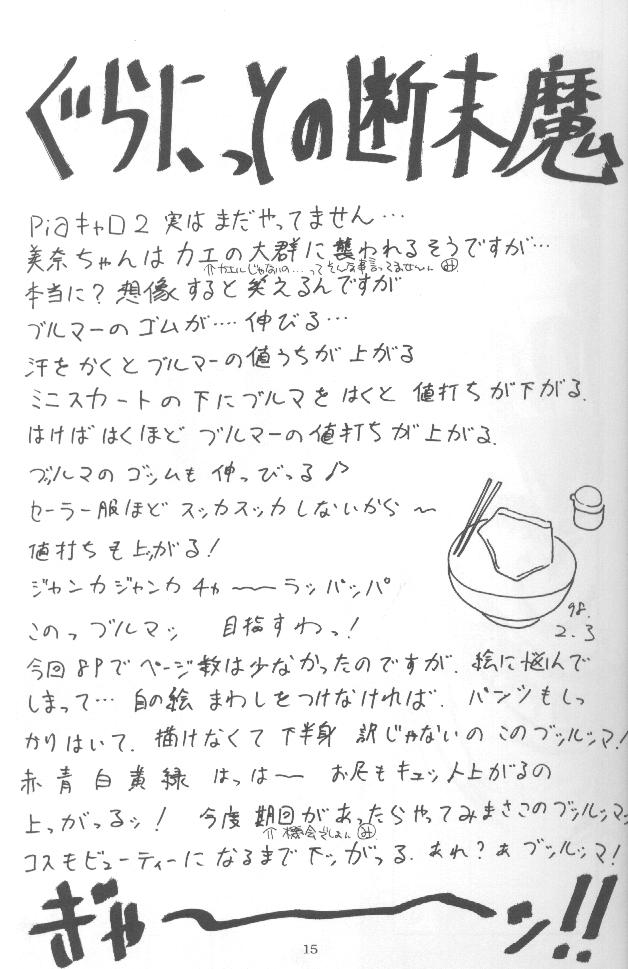 ぐらにっとの断末魔
Piaキャロ2 実はまだやってません…
美奈ちゃんは カエの大群に襲われるそうですが…
⇑カエルじゃないの…ってそんな事言ってませんん
本当に?想像すると笑えるんですが
ブルマーのゴムが…. 伸びる…
汗をかくとブルマーの値うちが上がる
ミニスカートの下にブルマをはくと 値打ちが下がる.
はけばはくほど ブルマーの値打ちが上がる.
ブッルマのゴッムも伸っびっる♪
セーラー服ほど スッカスッカしないから〜
値打ちも上ッがる!
ジャンカジャンカ チャ〜〜ラッパッパ
このっブルマッ 目指すわっ!
98.
2.3
今回8Pでページ数は少なかったのですが、絵に悩んで
しまって… 自の絵 まわしをつけなければ、パンツもしっ
かりはいて、描けなくて下半身 訳じゃないの このブッルッマ!
赤 青 白 黄 緑 はっは〜 お尻もキュッ上がるの
上っがっるッ! 今度期回があったらやってみまさこのブッルッマッ
⇑機会でしょん
コスモビューティーになるまで下ッがっる. あれ?あブッルッマ!
ぎゃ〜〜ン!!
15